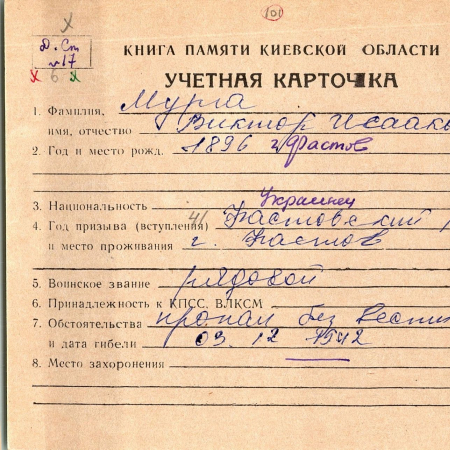 101
Д. Ст
№17
х 6 х
КНИГА ПАМЯТИ КИЕВСКОЙ ОБЛАСТИ
УЧЕТНАЯ КАРТОЧКА
1. Фамилия, Мурга
имя, отчество Виктор Исаакь
2. Год и место рожд. 1896 г. Фастов
3. Национальность Украинец
4. Год призыва (вступления) 41 Фастовский
и место проживания г. Фастов
5. Воинское звание рядовой
6. Принадлежность к КПСС. ВЛКСМ
7. Обстоятельства пропал без вести
и дата гибели 03. 12 1942
8. Место захоронения